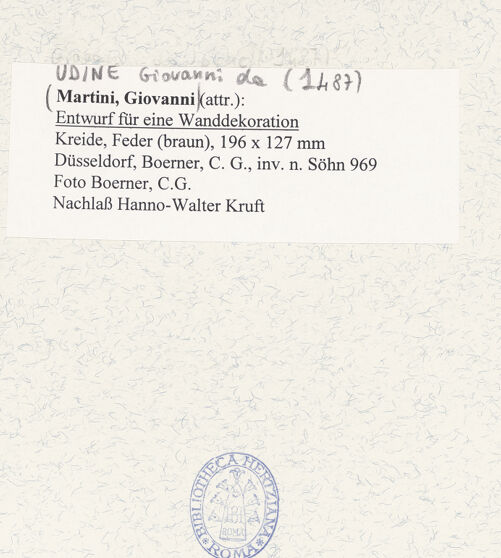 UDINE Giovanni da (1487)
(Martini, Giovanni) (attr.):
Entwurf für eine Wanddekoration
Kreide, Feder (braun), 196 x 127 mm
Düsseldorf, Boerner, C. G., inv. n. Söhn 969
Foto Boerner, C.G.
Nachlaß Hanno-Walter Kruft
BIBLIOTHECA HERTZIANA
ROMA
ROMA